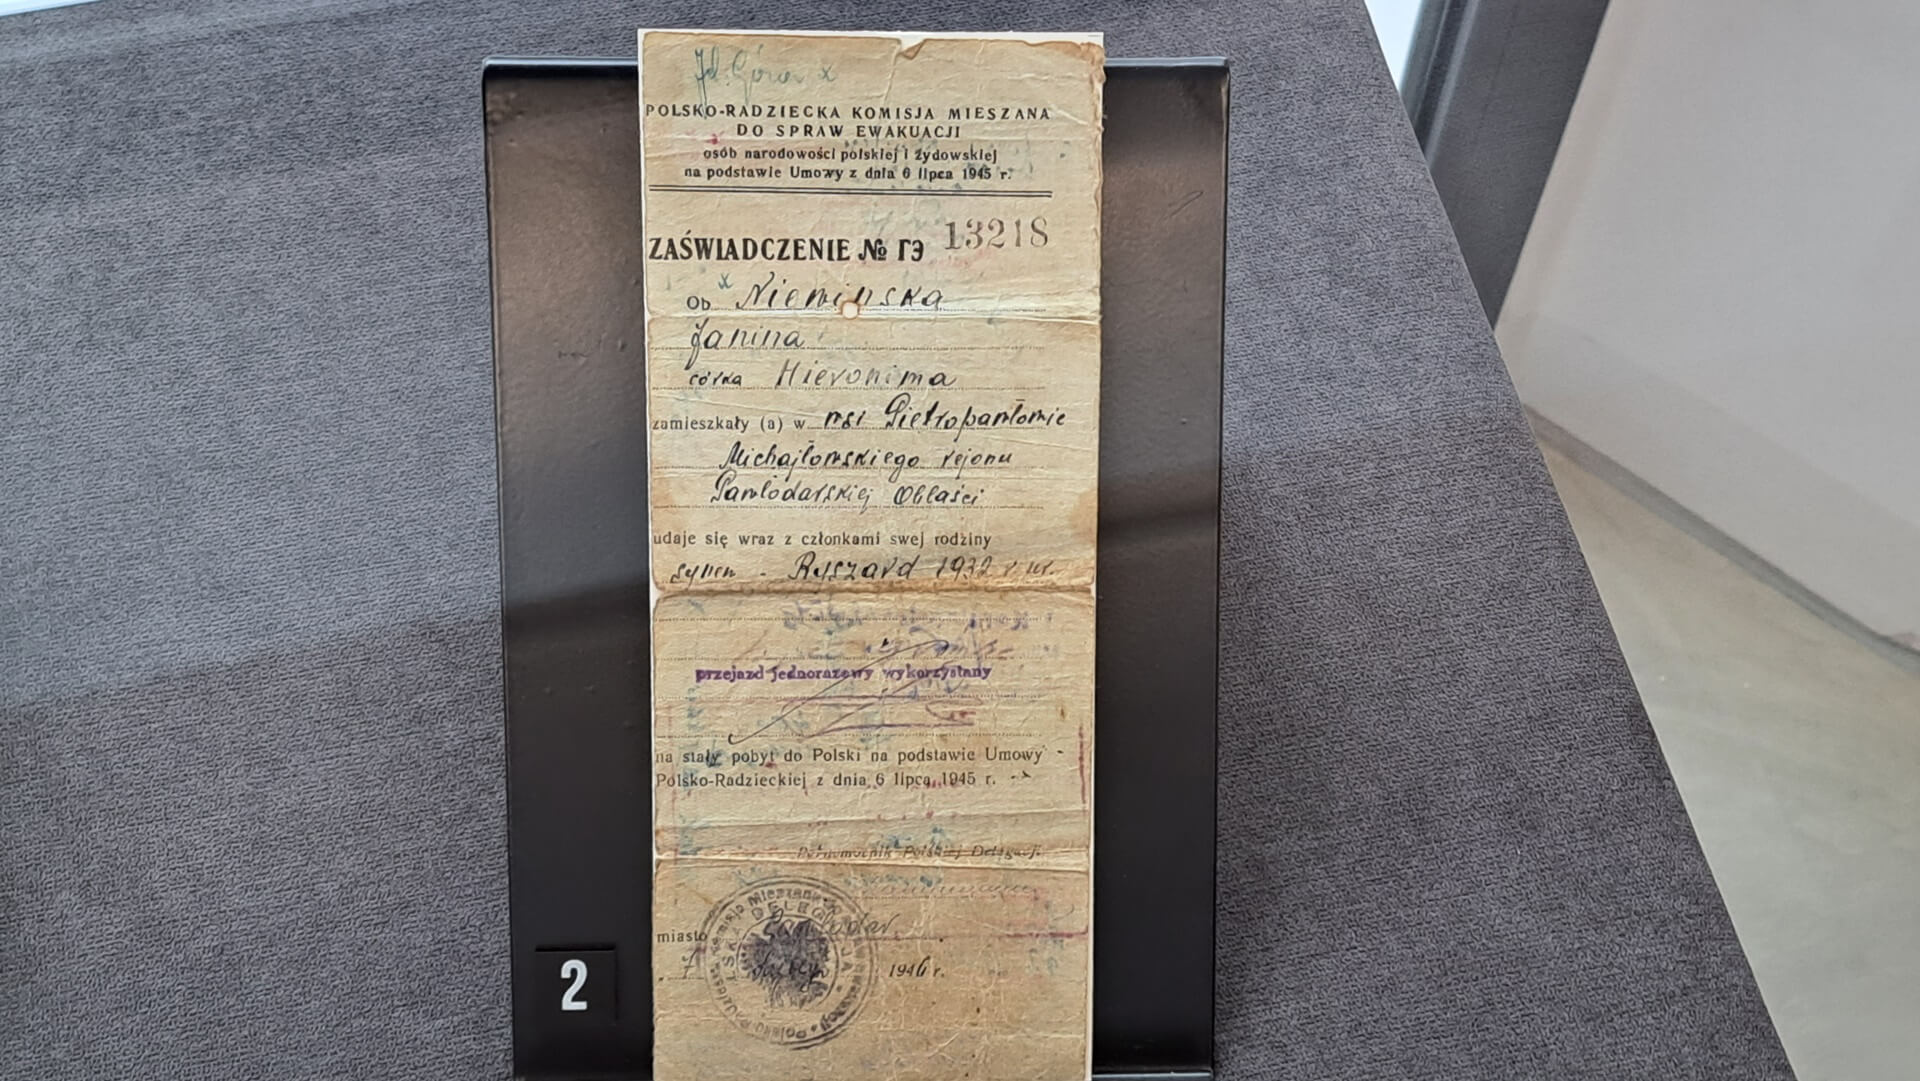 Jel. Góra x
POLSKO-RADZIECKA KOMISJA MIESZANA
DO SPRAW EWAKUACJI
osób narodowości polskiej i żydowskiej
na podstawie Umowy z dnia 6 lipca 1945 r.
ZAŚWIADCZENIE № ГЭ 13218
Ob. x Niewinska
Janina
córka Hieronima
zamieszkały (a) w wsi Pietropawłowie
Michajłowskiego rejonu
Pawłodarskiej Obłaści
udaje się wraz z członkami swej rodziny
synem - Ryszard 1932 r ur.
przejazd jednorazowy wykorzystany
na stały pobyt do Polski na podstawie Umowy
Polsko-Radzieckiej z dnia 6 lipca 1945 r.
Pełnomocnik Polskiej Delegacji
miasto Pawłodar
1946 r.
2